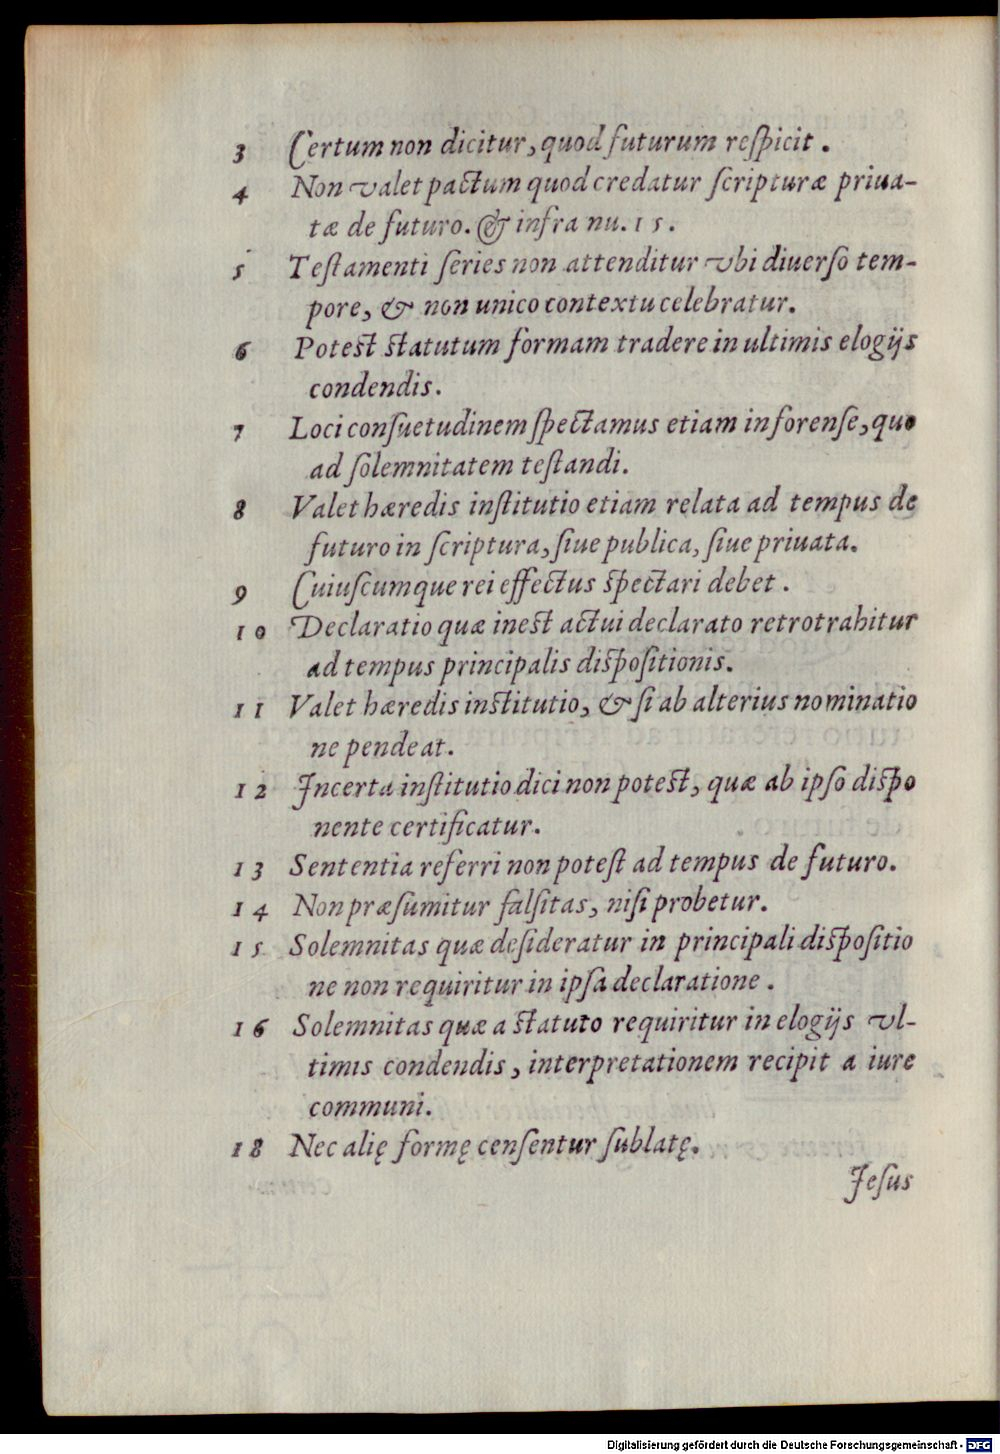 3 Certum non dicitur, quod futurum reſpicit .
4 Non valet pactum quod credatur ſcripturæ priua-
tæ de futuro. & infra nu. 15.
5 Teſtamenti ſeries non attenditur vbi diuerſo tem-
pore, & non unico contextu celebratur.
6 Poteſt ſtatutum formam tradere in ultimis elogijs
condendis.
7 Loci conſuetudinem ſpectamus etiam in forenſe, quo
ad ſolemnitatem teſtandi.
8 Valet hæredis inſtitutio etiam relata ad tempus de
futuro in ſcriptura, ſiue publica, ſiue priuata.
9 Cuiuſcumque rei effectus ſpectari debet .
10 Declaratio quæ ineſt actui declarato retrotrahitur
ad tempus principalis diſpoſitionis.
11 Valet hæredis inſtitutio, & ſi ab alterius nominatio
ne pendeat.
12 Incerta inſtitutio dici non poteſt, quæ ab ipſo diſpo
nente certificatur.
13 Sententia referri non poteſt ad tempus de futuro.
14 Non præſumitur falſitas, niſi probetur.
15 Solemnitas quæ deſideratur in principali diſpoſitio
ne non requiritur in ipſa declaratione .
16 Solemnitas quæ a ſtatuto requiritur in elogijs vl-
timis condendis, interpretationem recipit a iure
communi.
18 Nec alię formę cenſentur ſublatę.
Jeſus
Digitalisierung gefördert durch die Deutsche Forschungsgemeinschaft - DFG